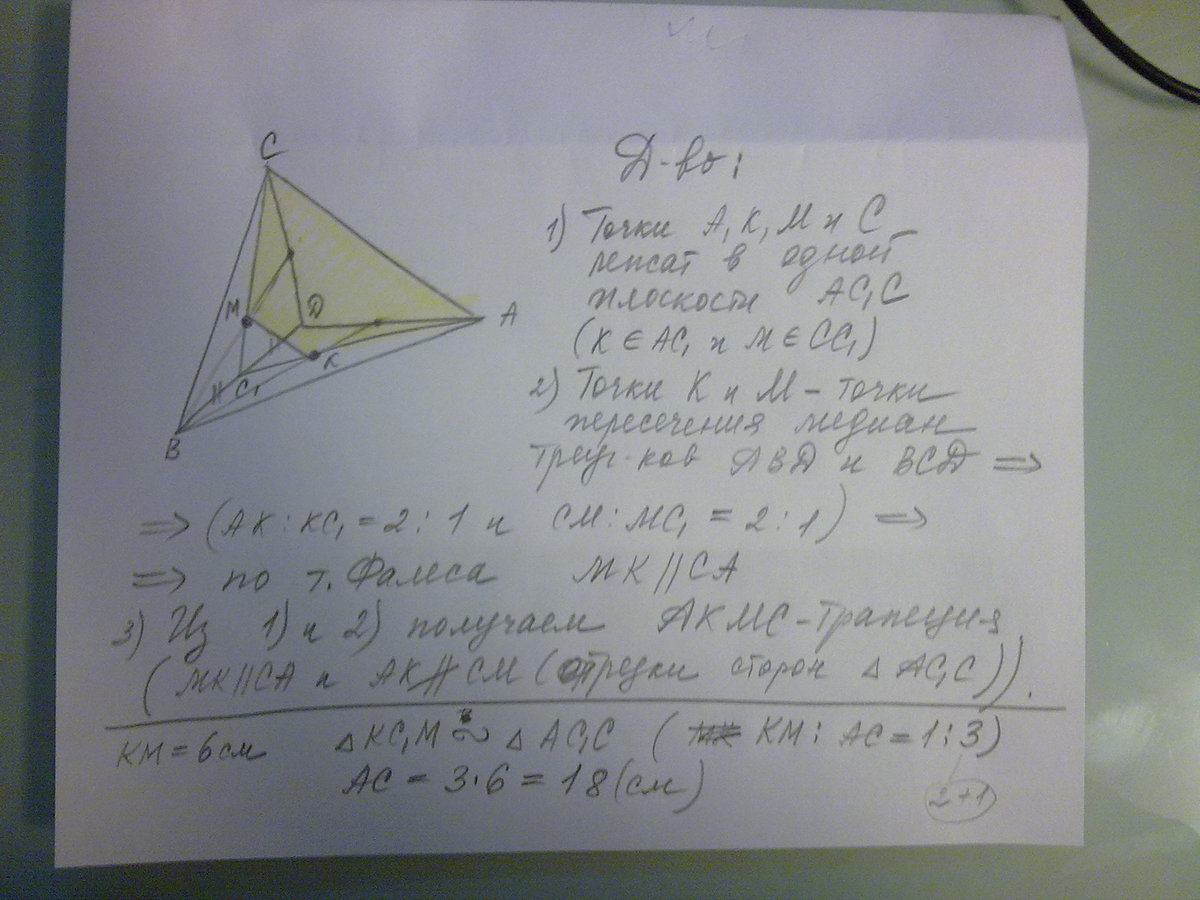 C
M
D
A
K
C₁
B
Д-во:
1) Точки A, K, M и C
лежат в одной
плоскости AC₁C
(K ∈ AC₁ и M ∈ CC₁)
2) Точки K и M – точки
пересечения медиан
треуг-ков ABD и BCD ⇒
⇒ (AK : KC₁ = 2 : 1 и CM : MC₁ = 2 : 1) ⇒
⇒ по т. Фалеса MK || CA
3) Из 1) и 2) получаем AKMC – трапеция
(MK || CA и AK ∦ CM (отрезки сторон △ AC₁C)).
KM = 6 см △ KC₁M ∾ △ AC₁C ( KM : AC = 1 : 3)
AC = 3·6 = 18 (см)
2+1